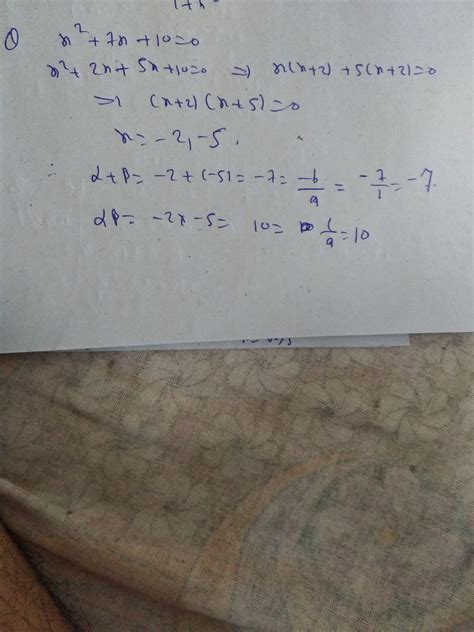 ① x² + 7x + 10 = 0
x² + 2x + 5x + 10 = 0 ⇒ x(x+2) + 5(x+2) = 0
⇒ (x+2) (x+5) = 0
x = -2, -5.
α+β = -2 + (-5) = -7 = -b/a = -7/1 = -7.
αβ = -2x -5 = 10 = c/a = 10